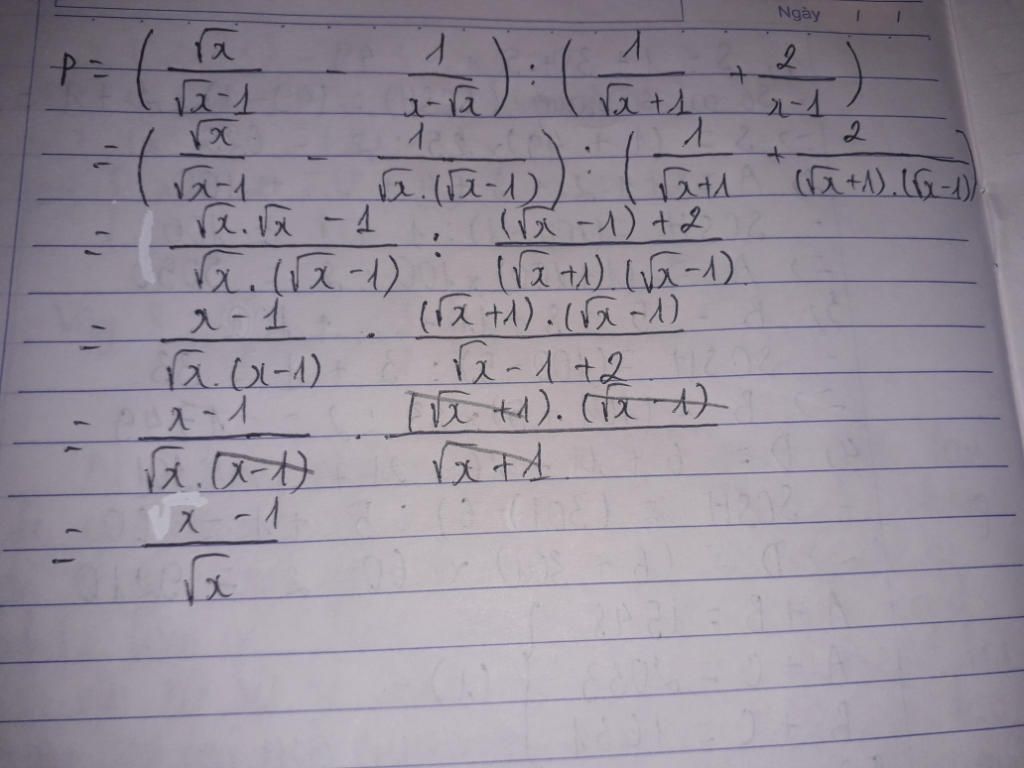 Ngày / /
P = ( √x / (√x-1) - 1 / (x-√x) ) : ( 1 / (√x+1) + 2 / (x-1) )
= ( √x / (√x-1) - 1 / (√x.(√x-1)) ) : ( 1 / (√x+1) + 2 / ((√x+1).(√x-1)) )
= (√x.√x - 1) / (√x.(√x-1)) : ((√x-1)+2) / ((√x+1).(√x-1))
= (x-1) / (√x.(x-1)) . ((√x+1).(√x-1)) / (√x-1+2)
= (x-1) / (√x.(x-1)) . ((√x+1).(√x-1)) / (√x+1)
= (x-1) / √x